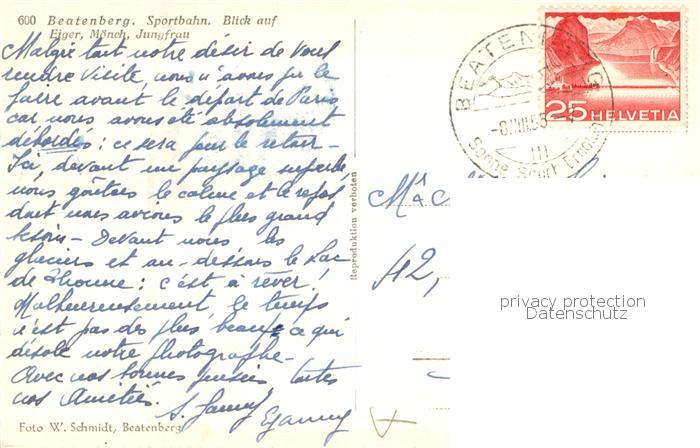 600 Beatenberg. Sportbahn. Blick auf
Eiger, Mönch, Jungfrau
Malgré tout notre désir de vous
rendre visite, nous n'avons pu le
faire avant le départ de Paris
car nous avons été absolument
débordés : ce sera pour le retour –
Ici, devant un paysage superbe,
nous goûtons le calme et le repos
dont nous avions le plus grand
besoin – Devant nous les
glaciers et au-dessous le Lac
de Thoune : c'est à rêver !
Malheureusement, le temps
n'est pas des plus beaux ce qui
désole notre photographe –
Avec nos bonnes pensées, toutes
nos Amitiés.
Foto W. Schmidt, Beatenberg
Reproduktion verboten
BEATENBERG
Sonne Sport Erholung
25 HELVETIA
42,
privacy protection
Datenschutz